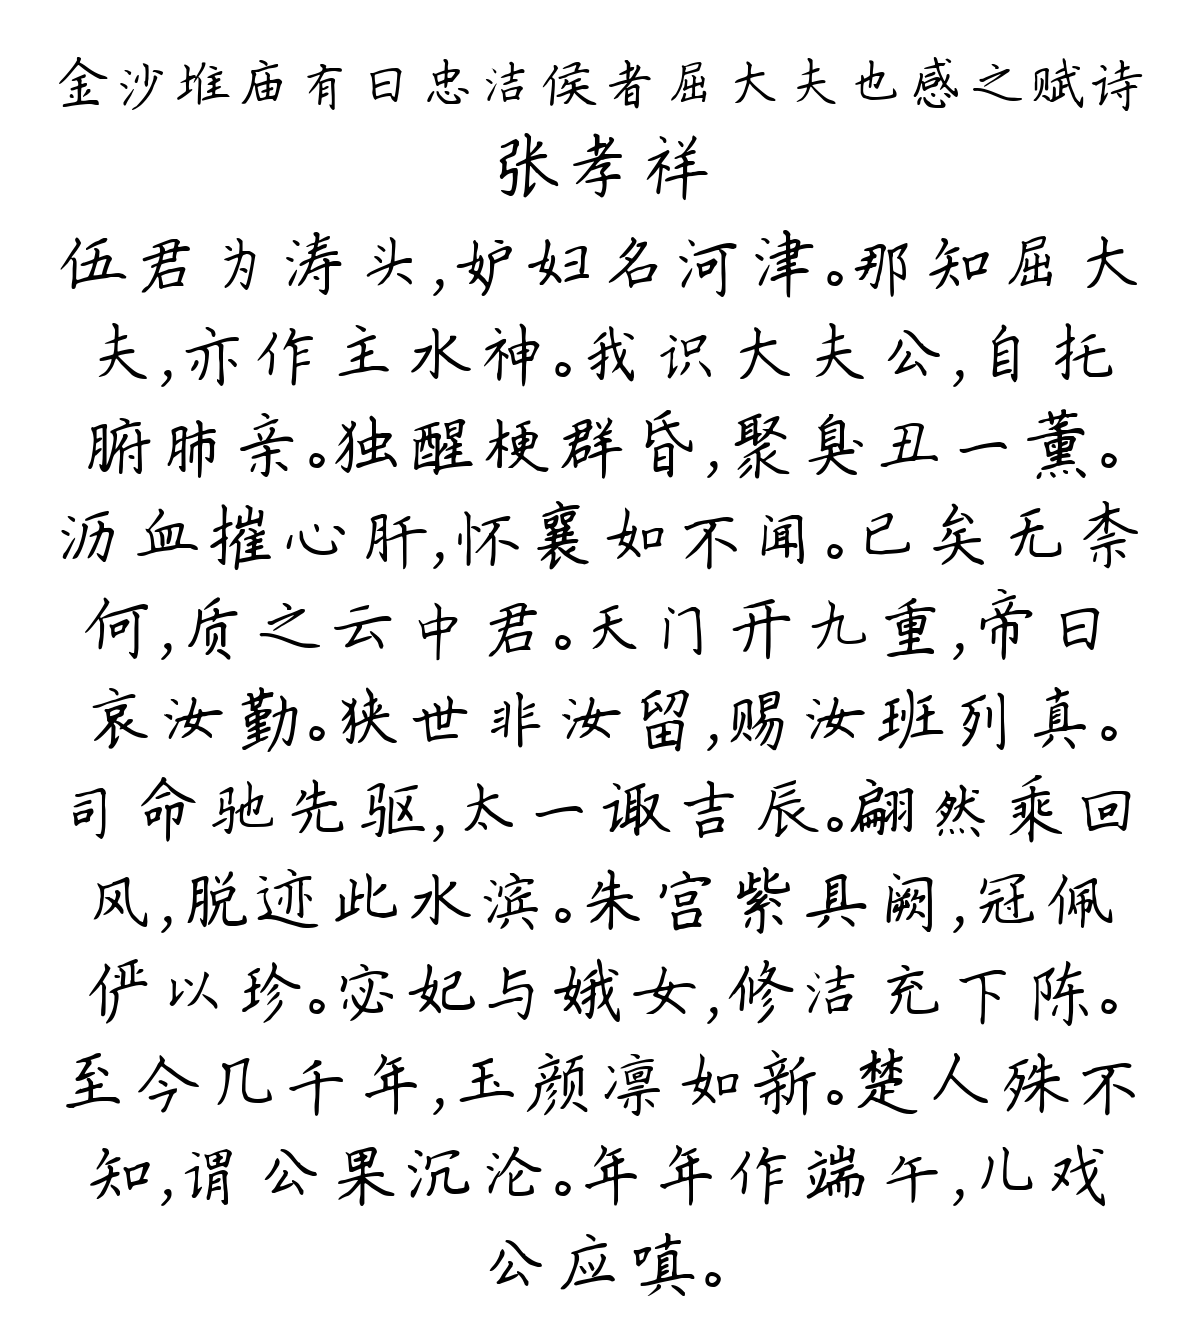 金沙堆庙有曰忠洁侯者屈大夫也感之赋诗
张孝祥
伍君为涛头,妒妇名河津。那知屈大
夫,亦作主水神。我识大夫公,自托
腑肺亲。独醒梗群昏,聚臭丑一薰。
沥血摧心肝,怀襄如不闻。已矣无柰
何,质之云中君。天门开九重,帝曰
哀汝勤。狭世非汝留,赐汝班列真。
司命驰先驱,太一诹吉辰。翩然乘回
风,脱迹此水滨。朱宫紫具阙,冠佩
俨以珍。宓妃与娥女,修洁充下陈。
至今几千年,玉颜凛如新。楚人殊不
知,谓公果沉沦。年年作端午,儿戏
公应嗔。